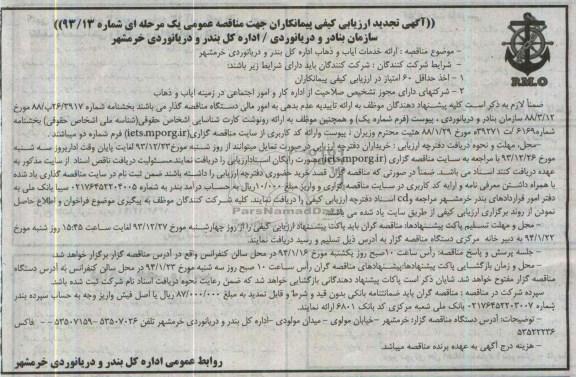 ((آگهی تجدید ارزیابی کیفی پیمانکاران جهت مناقصه عمومی یک مرحله ای شماره ۹۳/۱۳))
سازمان بنادر و دریانوردی / اداره کل بندر و دریانوردی خرمشهر
– موضوع مناقصه : ارائه خدمات ایاب و ذهاب اداره کل بندر و دریانوردی خرمشهر
– شرایط شرکت کنندگان : شرکت کنندگان باید دارای شرایط زیر باشند:
۱ – اخذ حداقل ۶۰ امتیاز در ارزیابی کیفی پیمانکاران
۲ – شرکتهای دارای مجوز تشخیص صلاحیت از اداره کار و امور اجتماعی در زمینه ایاب و ذهاب
R.M.O
ضمناً لازم به ذکر است کلیه پیشنهاد دهندگان موظف به ارائه تاییدیه عدم بدهی به امور مالی دستگاه مناقصه گذار می باشند بخشنامه شماره ۲۶/۳۹۱۷ب/۸۸ مورخ
۸۸/۳/۱۲ سازمان بنادر و دریانوردی ، پیوست (فرم شماره یک) و همچنین موظف به ارائه رونوشت کارت شناسایی اشخاص حقوقی(شناسه ملی اشخاص حقوقی) بخشنامه
شماره ۶۱۶۹/ت۳۹۲۷۱ه مورخ ۸۸/۱/۲۹ هیئت محترم وزیران ؛ پیوست وارائه کد کاربری از سایت مناقصه گزاری(iets.mporg.ir) فرم شماره دو میباشند .
–محل، مهلت و نحوه دریافت دفترچه ارزیابی : خریداران دفترچه ارزیابی در صورت تمایل میتوانند از روز شنبه مورخ ۹۳/۱۲/۲۳ لغایت پایان وقت اداری روز سه شنبه
مورخ ۹۳/۱۲/۲۶ با مراجعه به سایت مناقصه گزاری (iets.mporg.ir) بصورت رایگان اسناد ارزیابی را دریافت نمایند.مسئولیت دریافت ناقص اسناد از سایت مذکور به
عهده دریافت کنند اسناد می باشد. ضمناً در صورتی که مناقصه گران قصد خرید حضوری دفترچه ارزیابی را داشته باشند ضمن ثبت نام در سایت مناقصه گذاری یاد شده
با همراه داشتن معرفی نامه و ارایه کد کاربری در سایت مناقصه گزاری و واریز مبلغ ۱۰/۰۰۰ریال به حساب درآمد بندر به شماره ۰۲۱۷۶۴۵۲۲۰۴۰۰۵ سیبا بانک ملی به
دفتر امور قراردادهای بندر خرمشهر مراجعه و cd اسناد دفترچه ارزیابی کیفی را دریافت نمایند. کلیه شرکت کنندگان موظف به پیگیری موضوع فراخوان و اطلاع حاصل
نمودن از روند برگزاری ارزیابی کیفی از طریق سایت یاد شده می باشند.
ParsNamadData
– محل و مهلت تسلیم پاکت پیشنهادها: مناقصه گران باید پاکت پیشنهادهای ارزیابی کیفی را از روز چهارشنبه مورخ ۹۳/۱۲/۲۷ لغایت ساعت ۱۵:۴۵ روز شنبه مورخ
۹۴/۱/۲۲ به دبیر خانه مرکزی دستگاه مناقصه گزار به آدرس ذیل تسلیم و رسید دریافت نمایند.
– جلسه پرسش و پاسخ مناقصه: رأس ساعت ۱۰صبح روز یکشنبه مورخ ۹۴/۱/۱۶ در محل سالن کنفرانس واقع در آدرس مناقصه گزار برگزار خواهد شد.
– محل و زمان بازگشایی پاکت پیشنهادها:پیشنهادهای مناقصه گران رأس ساعت ۱۰ صبح روز سه شنبه مورخ ۹۴/۱/۲۳ در محل سالن کنفرانس به آدرس دستگاه
مناقصه گزار مفتوح خواهد شد. شایان ذکر است پاکات پیشنهاد دهندگانی بازگشایی خواهد شد که ضمن رعایت نحوه دریافت اسناد نام شرکت ثبت شده باشد.
سپرده شرکت در مناقصه : مناقصه گران باید ضمانتنامه بانکی بدون قید و شرط و قابل تمدید به مبلغ ۸۷/۰۰۰/۰۰۰ ریال یا اصل فیش واریز وجه به حساب سپرده بندر
شماره ۰۲۱۷۶۴۵۲۲۰۲۰۰۷ بانک ملی شعبه مرکزی کد بانک ۶۸۰۱ ارائه نمایند.
– توضیحات: آدرس دستگاه مناقصه گزار: خرمشهر –خیابان مولوی – میدان مولودی –اداره کل بندر و دریانوردی خرمشهر تلفن ۵۳۵۰۷۰۲۶ –۵۳۵۰۷۱۵۹ – – فاکس
۵۳۵۲۲۲۳۶
– هزینه درج آگهی به عهده برنده مناقصه میباشد.
روابط عمومی اداره کل بندر و دریانوردی خرمشهر